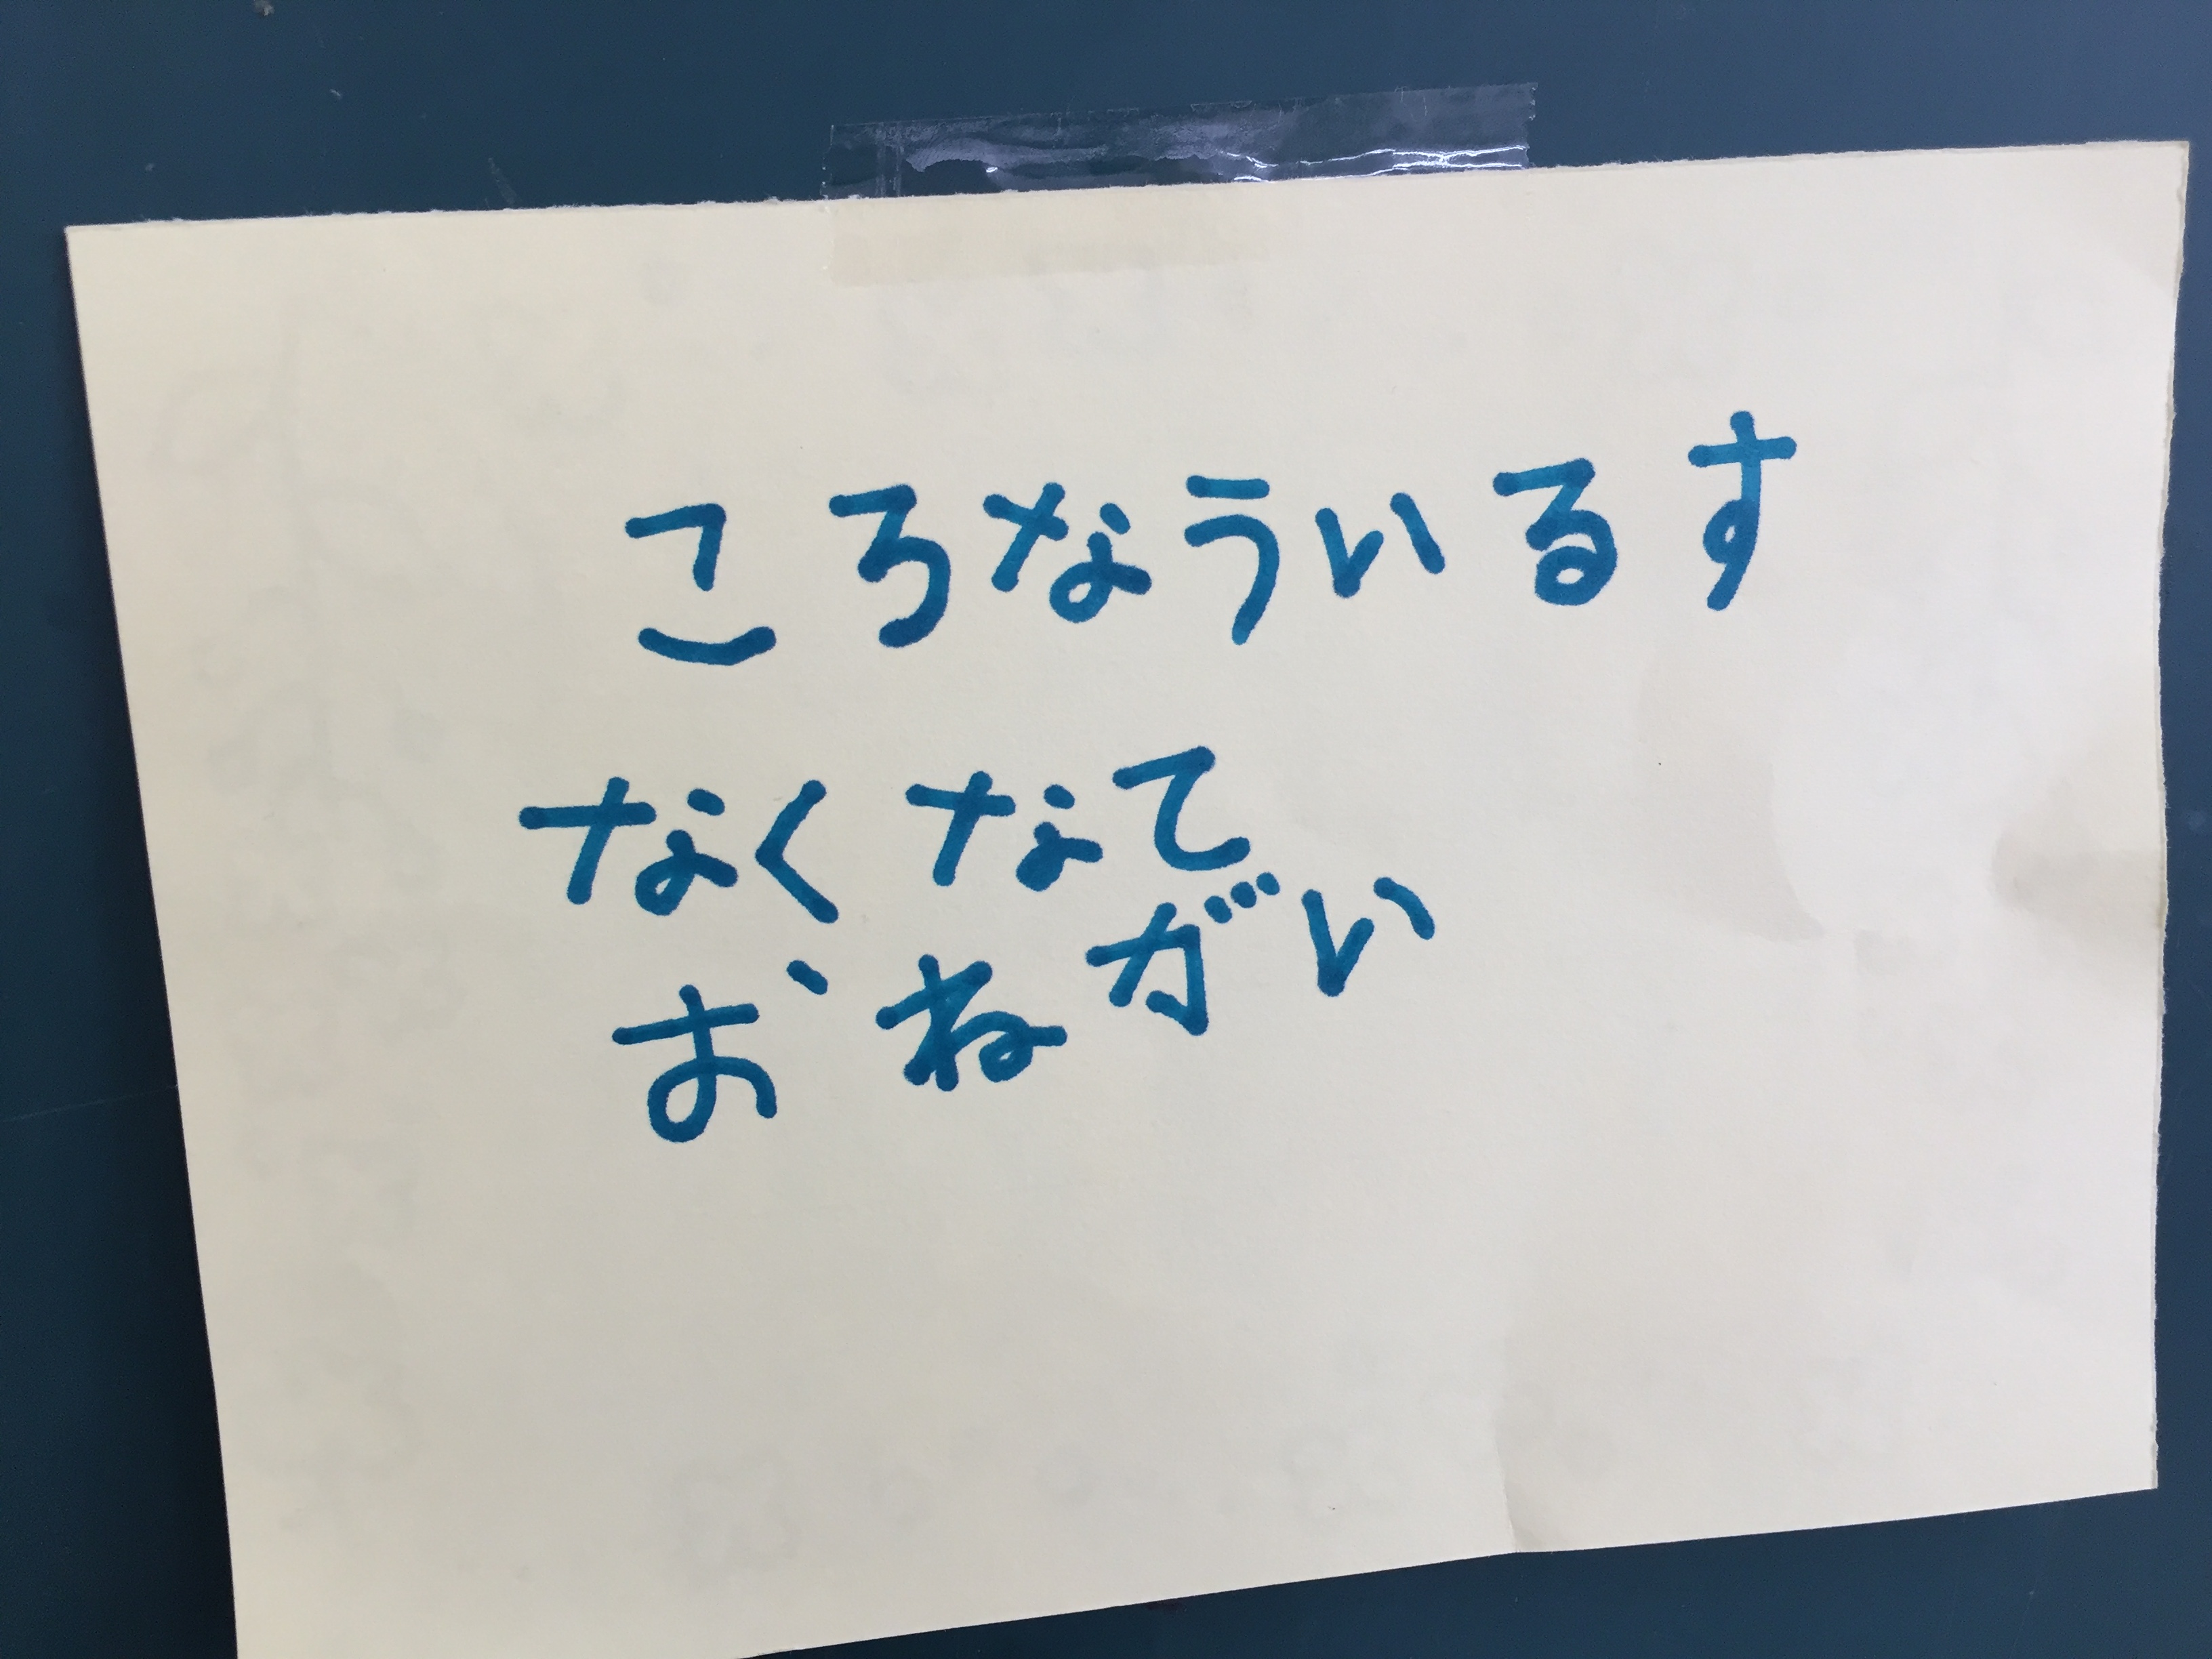 ころなういるす
なくなて
おねがい